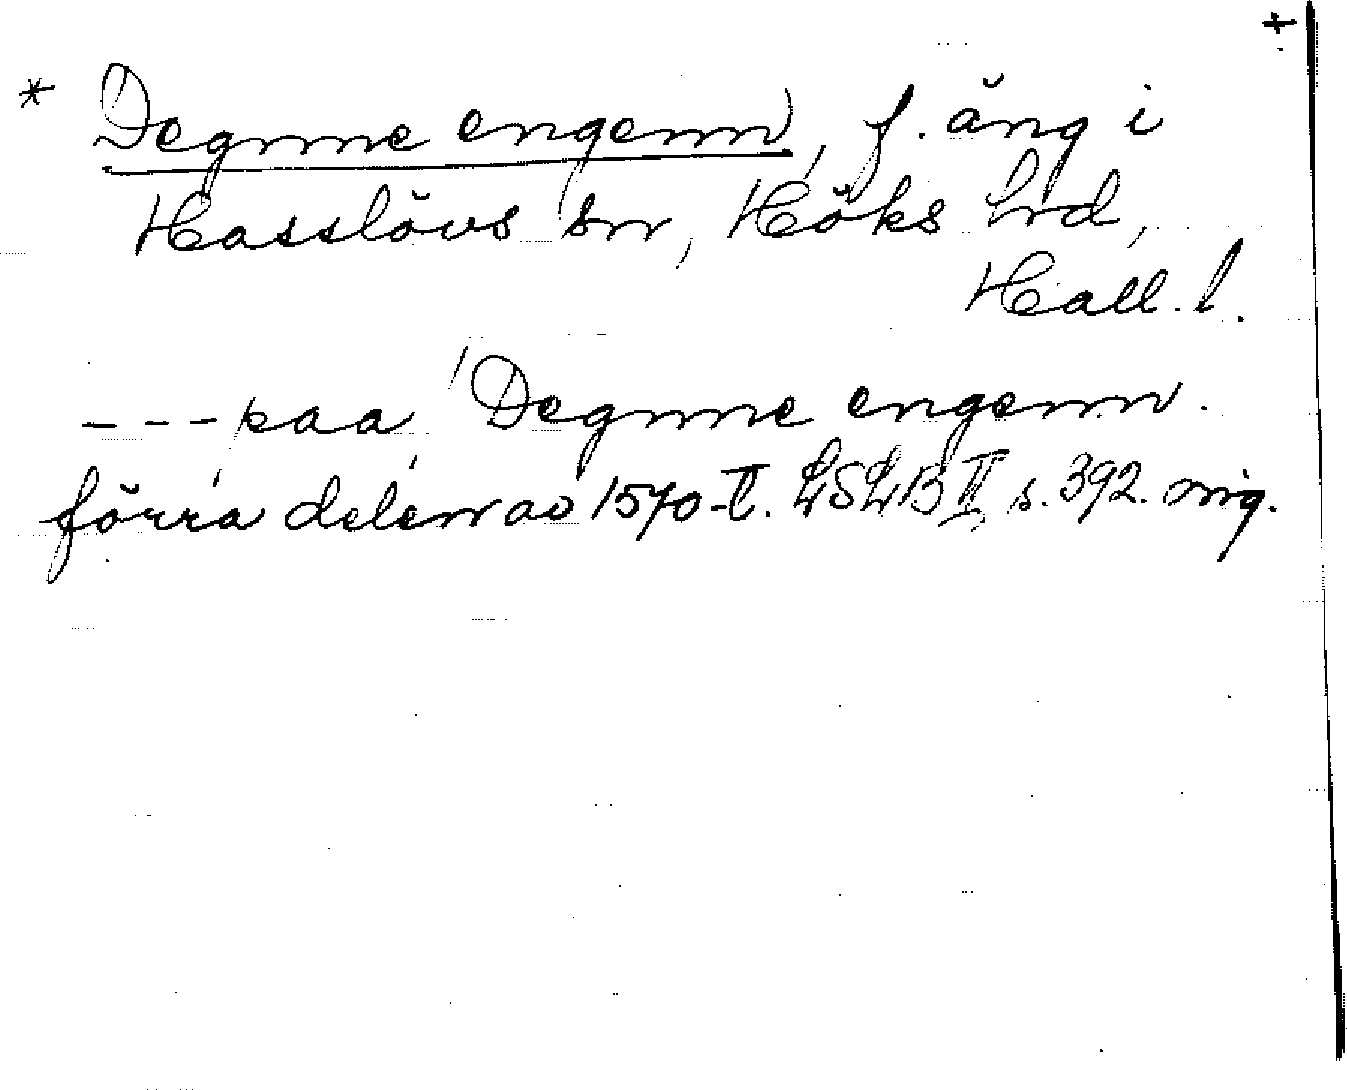 +
* Degnne engenn, f. äng i
Hasslövs sn, Höks hd,
Hall. l.
--- paa Degnne engenn.
förra delen av 1570-t. LSLB II, s. 392. mg.